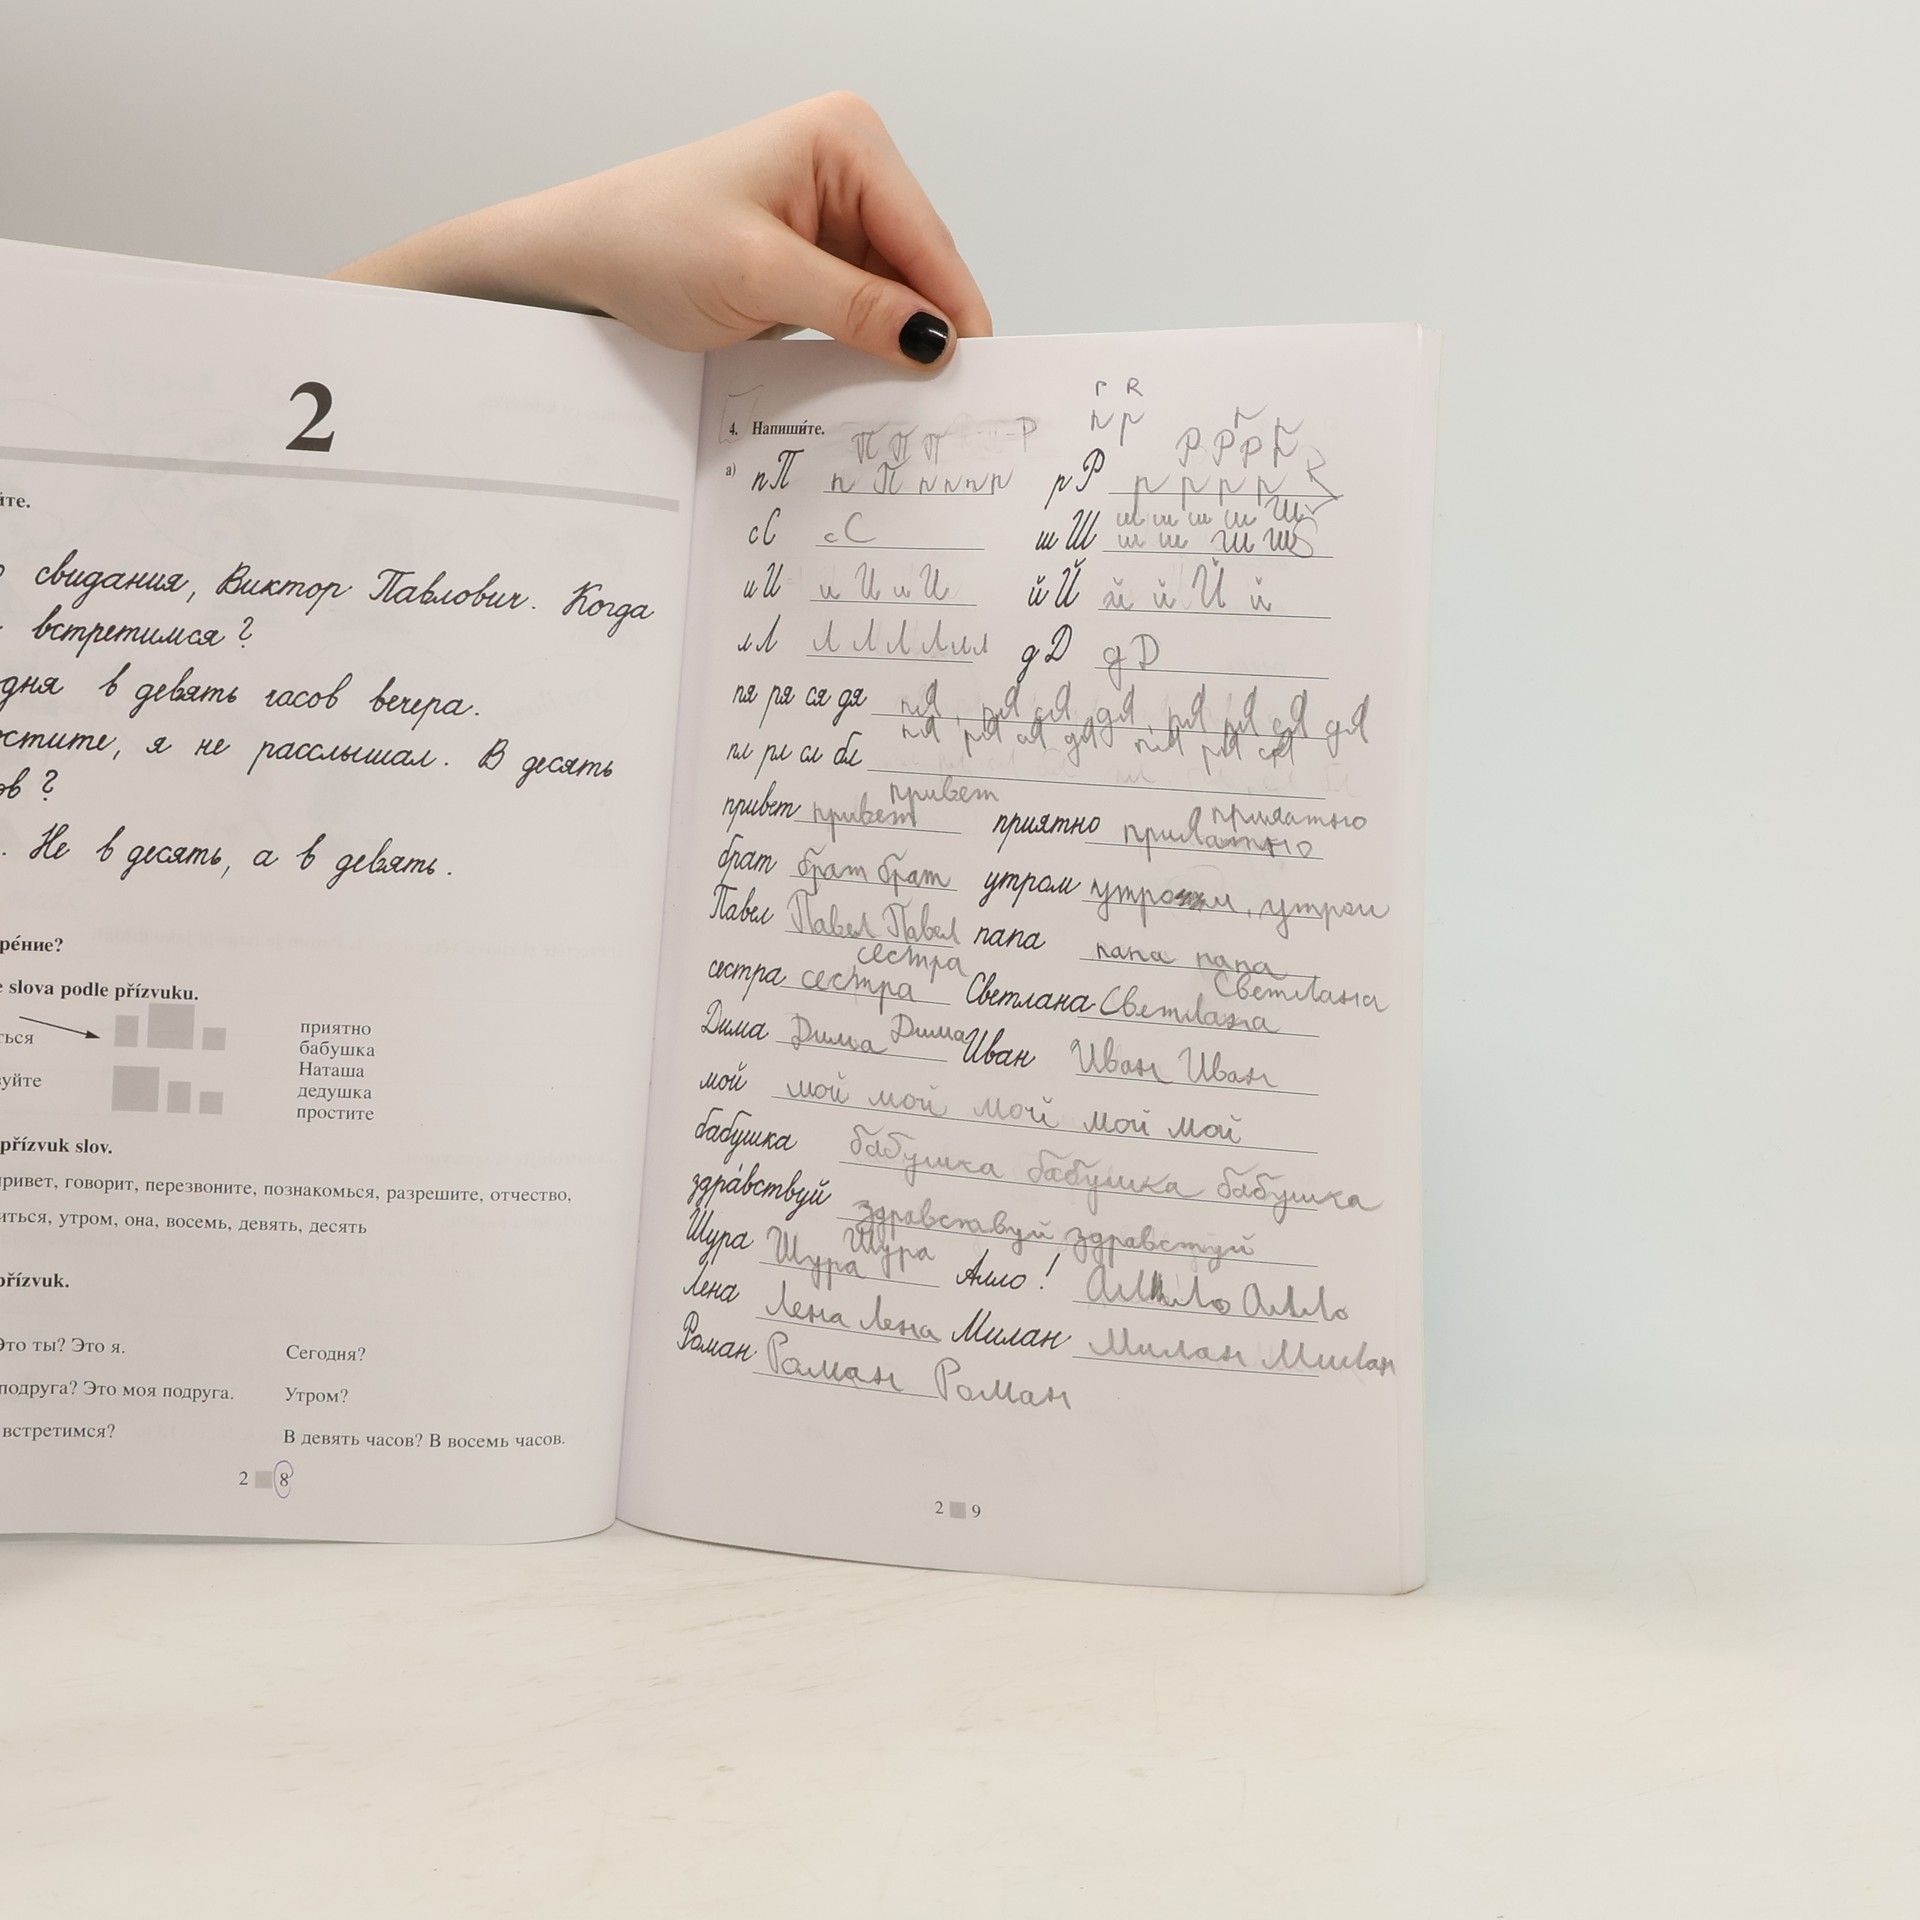 2
йте.
свидания, Виктор Павлович. Когда
встретимся?
дня в девять часов вечера.
остите, я не расслышал. В десять
ов?
. Не в десять, а в девять.
ре́ние?
e slova podle přízvuku.
ться
уйте
приятно
бабушка
Наташа
дедушка
простите
přízvuk slov.
ривет, говорит, перезвоните, познакомься, разрешите, отчество,
иться, утром, она, восемь, девять, десять
přízvuk.
Это ты? Это я. Сегодня?
подруга? Это моя подруга. Утром?
встретимся? В девять часов? В восемь часов.
2 8
r R
п р
4. Напиши́те. П П П Р
Р Р Р
а) пП п П п п п р рР р р р р
ш ш ш ш Ш
сС сС шШ ш ш Ш Ш
иИ и И и И йЙ й й Й й
лЛ Л Л Л Л л л дД д Д
пя ря ся дя пя, ря ся дя, пя ря ся дя
пя ря ся дя пя ря ся
пл рл сл бл
привет приятно
привет привет приятно приятно
брат брат брат утром утром, утром
Павел Павел Павел папа папа папа
сестра Светлана
сестра сестра Светлана Светлана
Дима Дима Дима Иван Иван Иван
мой мой мой мой мой мой
бабушка бабушка бабушка бабушка
здра́вствуй здравствуй здравстуй
Шура Шура Шура Алло! Алло
Лена Лена Лена Милан Милан Милан
Роман Роман Роман
2 9